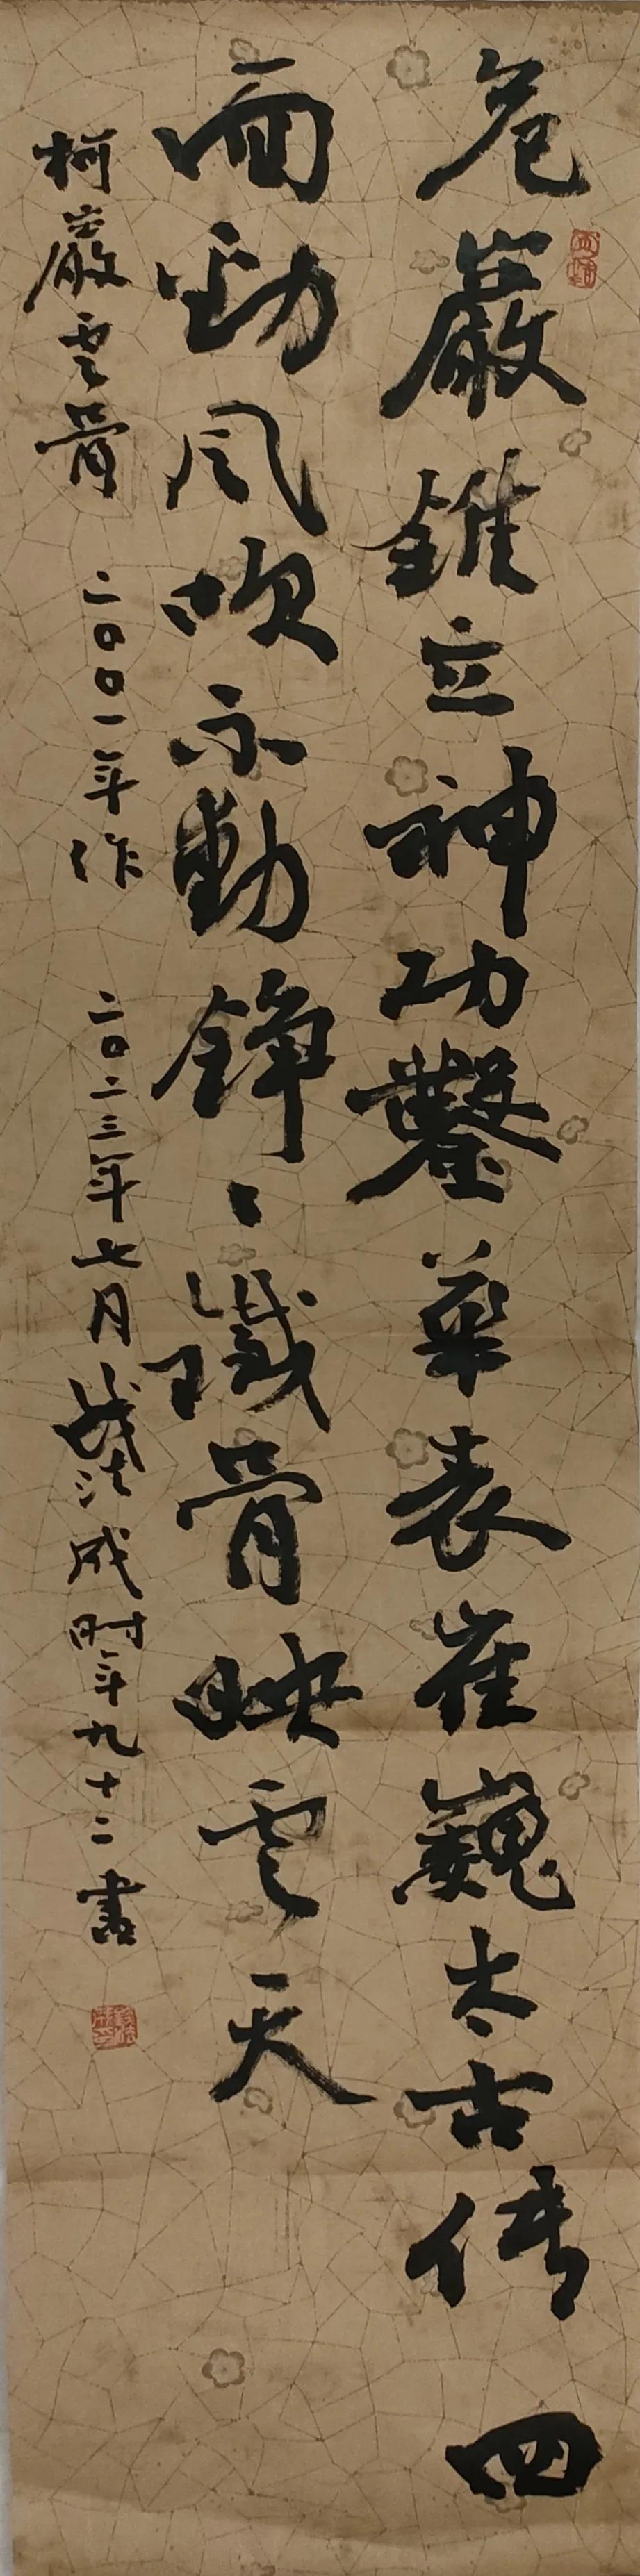 危巖錐立神功鑿華表崔巍太古傳四
面勁風吹不動錚〻鐵骨映雲天
柯巖雲骨 二〇〇一年作 二〇二三年七月 戰法成時年九十二書